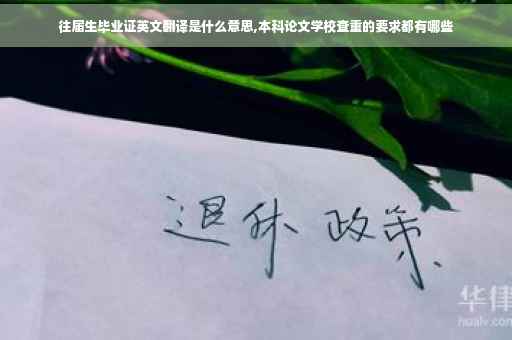 往届生毕业证英文翻译是什么意思,本科论文学校查重的要求都有哪些
退休 政策
华律
hualv.com